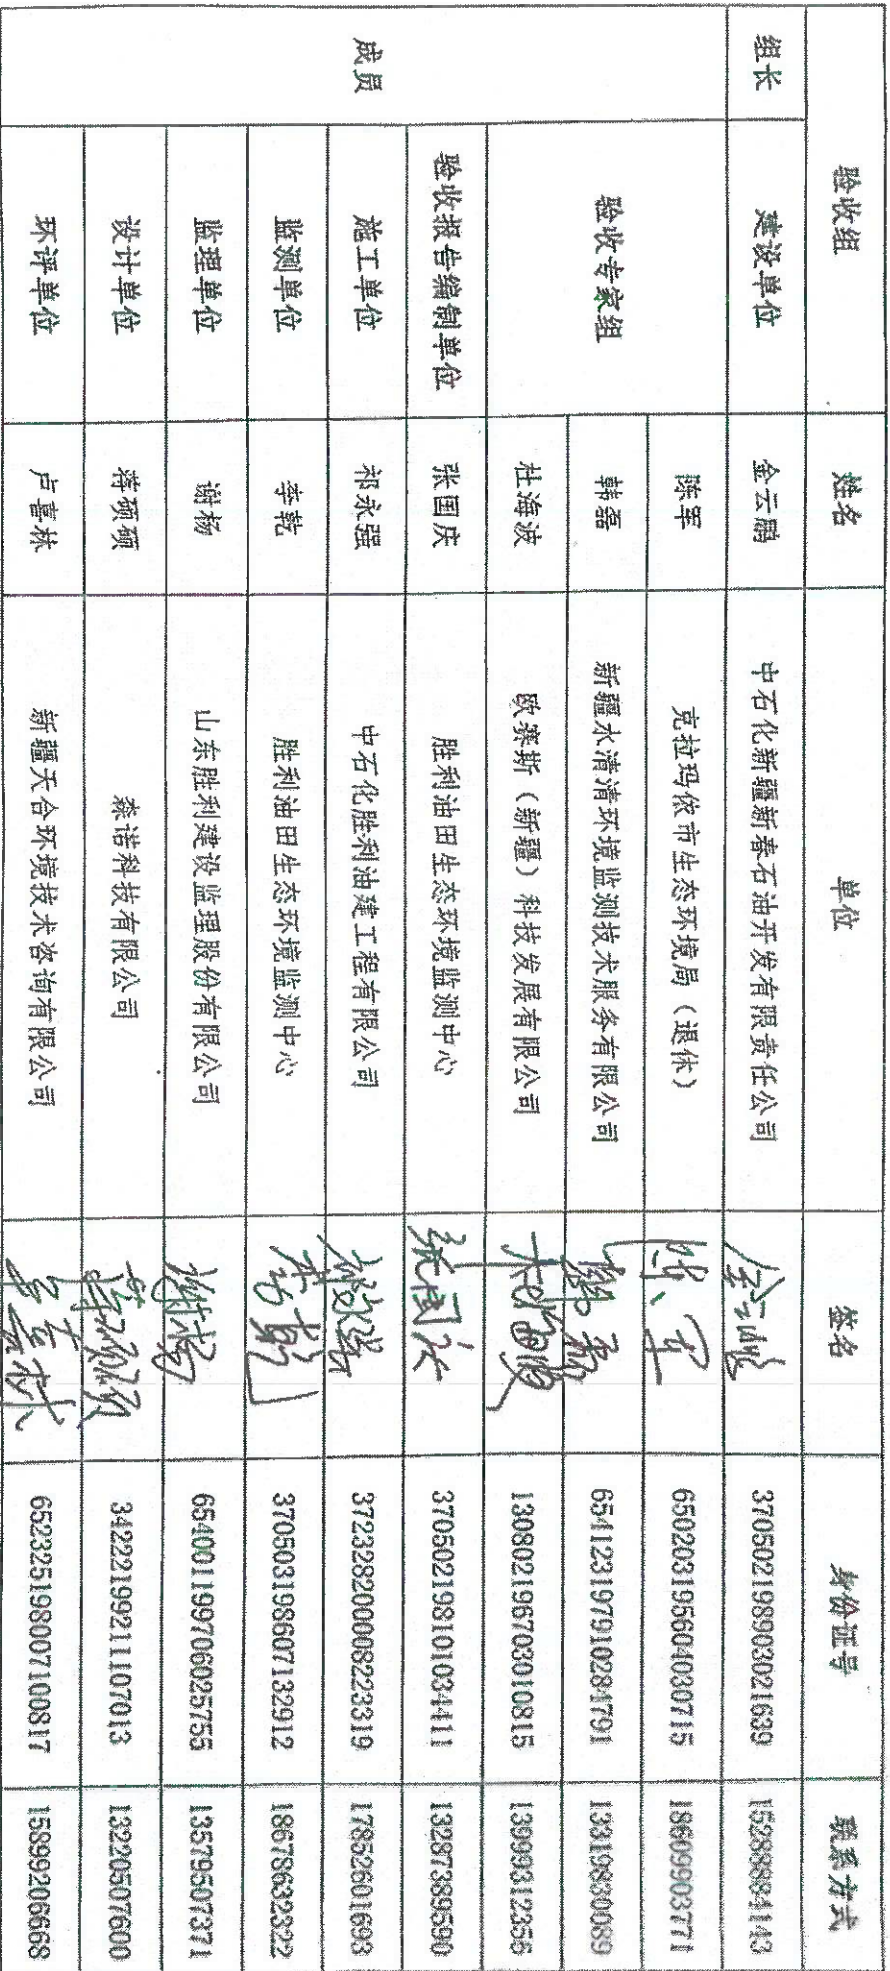 验收组 姓名 单位 签名 身份证号 联系方式
组长 建设单位 金云鹏 中石化新疆新春石油开发有限责任公司 金云鹏 370502198903021639 15288884143
成员 验收专家组 陈军 克拉玛依市生态环境局（退休） 陈军 650203195604030715 18609903771
韩磊 新疆水清清环境监测技术服务有限公司 韩磊 654123197910284791 13319830089
杜海波 欧赛斯（新疆）科技发展有限公司 杜海波 130802196703010815 13999312356
验收报告编制单位 张国庆 胜利油田生态环境监测中心 张国庆 370502198101034411 13287389590
施工单位 祁永强 中石化胜利油建工程有限公司 祁永强 372328200008223319 17852601693
监测单位 李乾 胜利油田生态环境监测中心 李乾 370503198607132912 18678632322
监理单位 谢杨 山东胜利建设监理股份有限公司 谢杨 654001199706025755 13579507371
设计单位 蒋硕硕 森诺科技有限公司 蒋硕硕 34222199211107013 13220507600
环评单位 卢喜林 新疆天合环境技术咨询有限公司 卢喜林 652325198007100817 15899206668